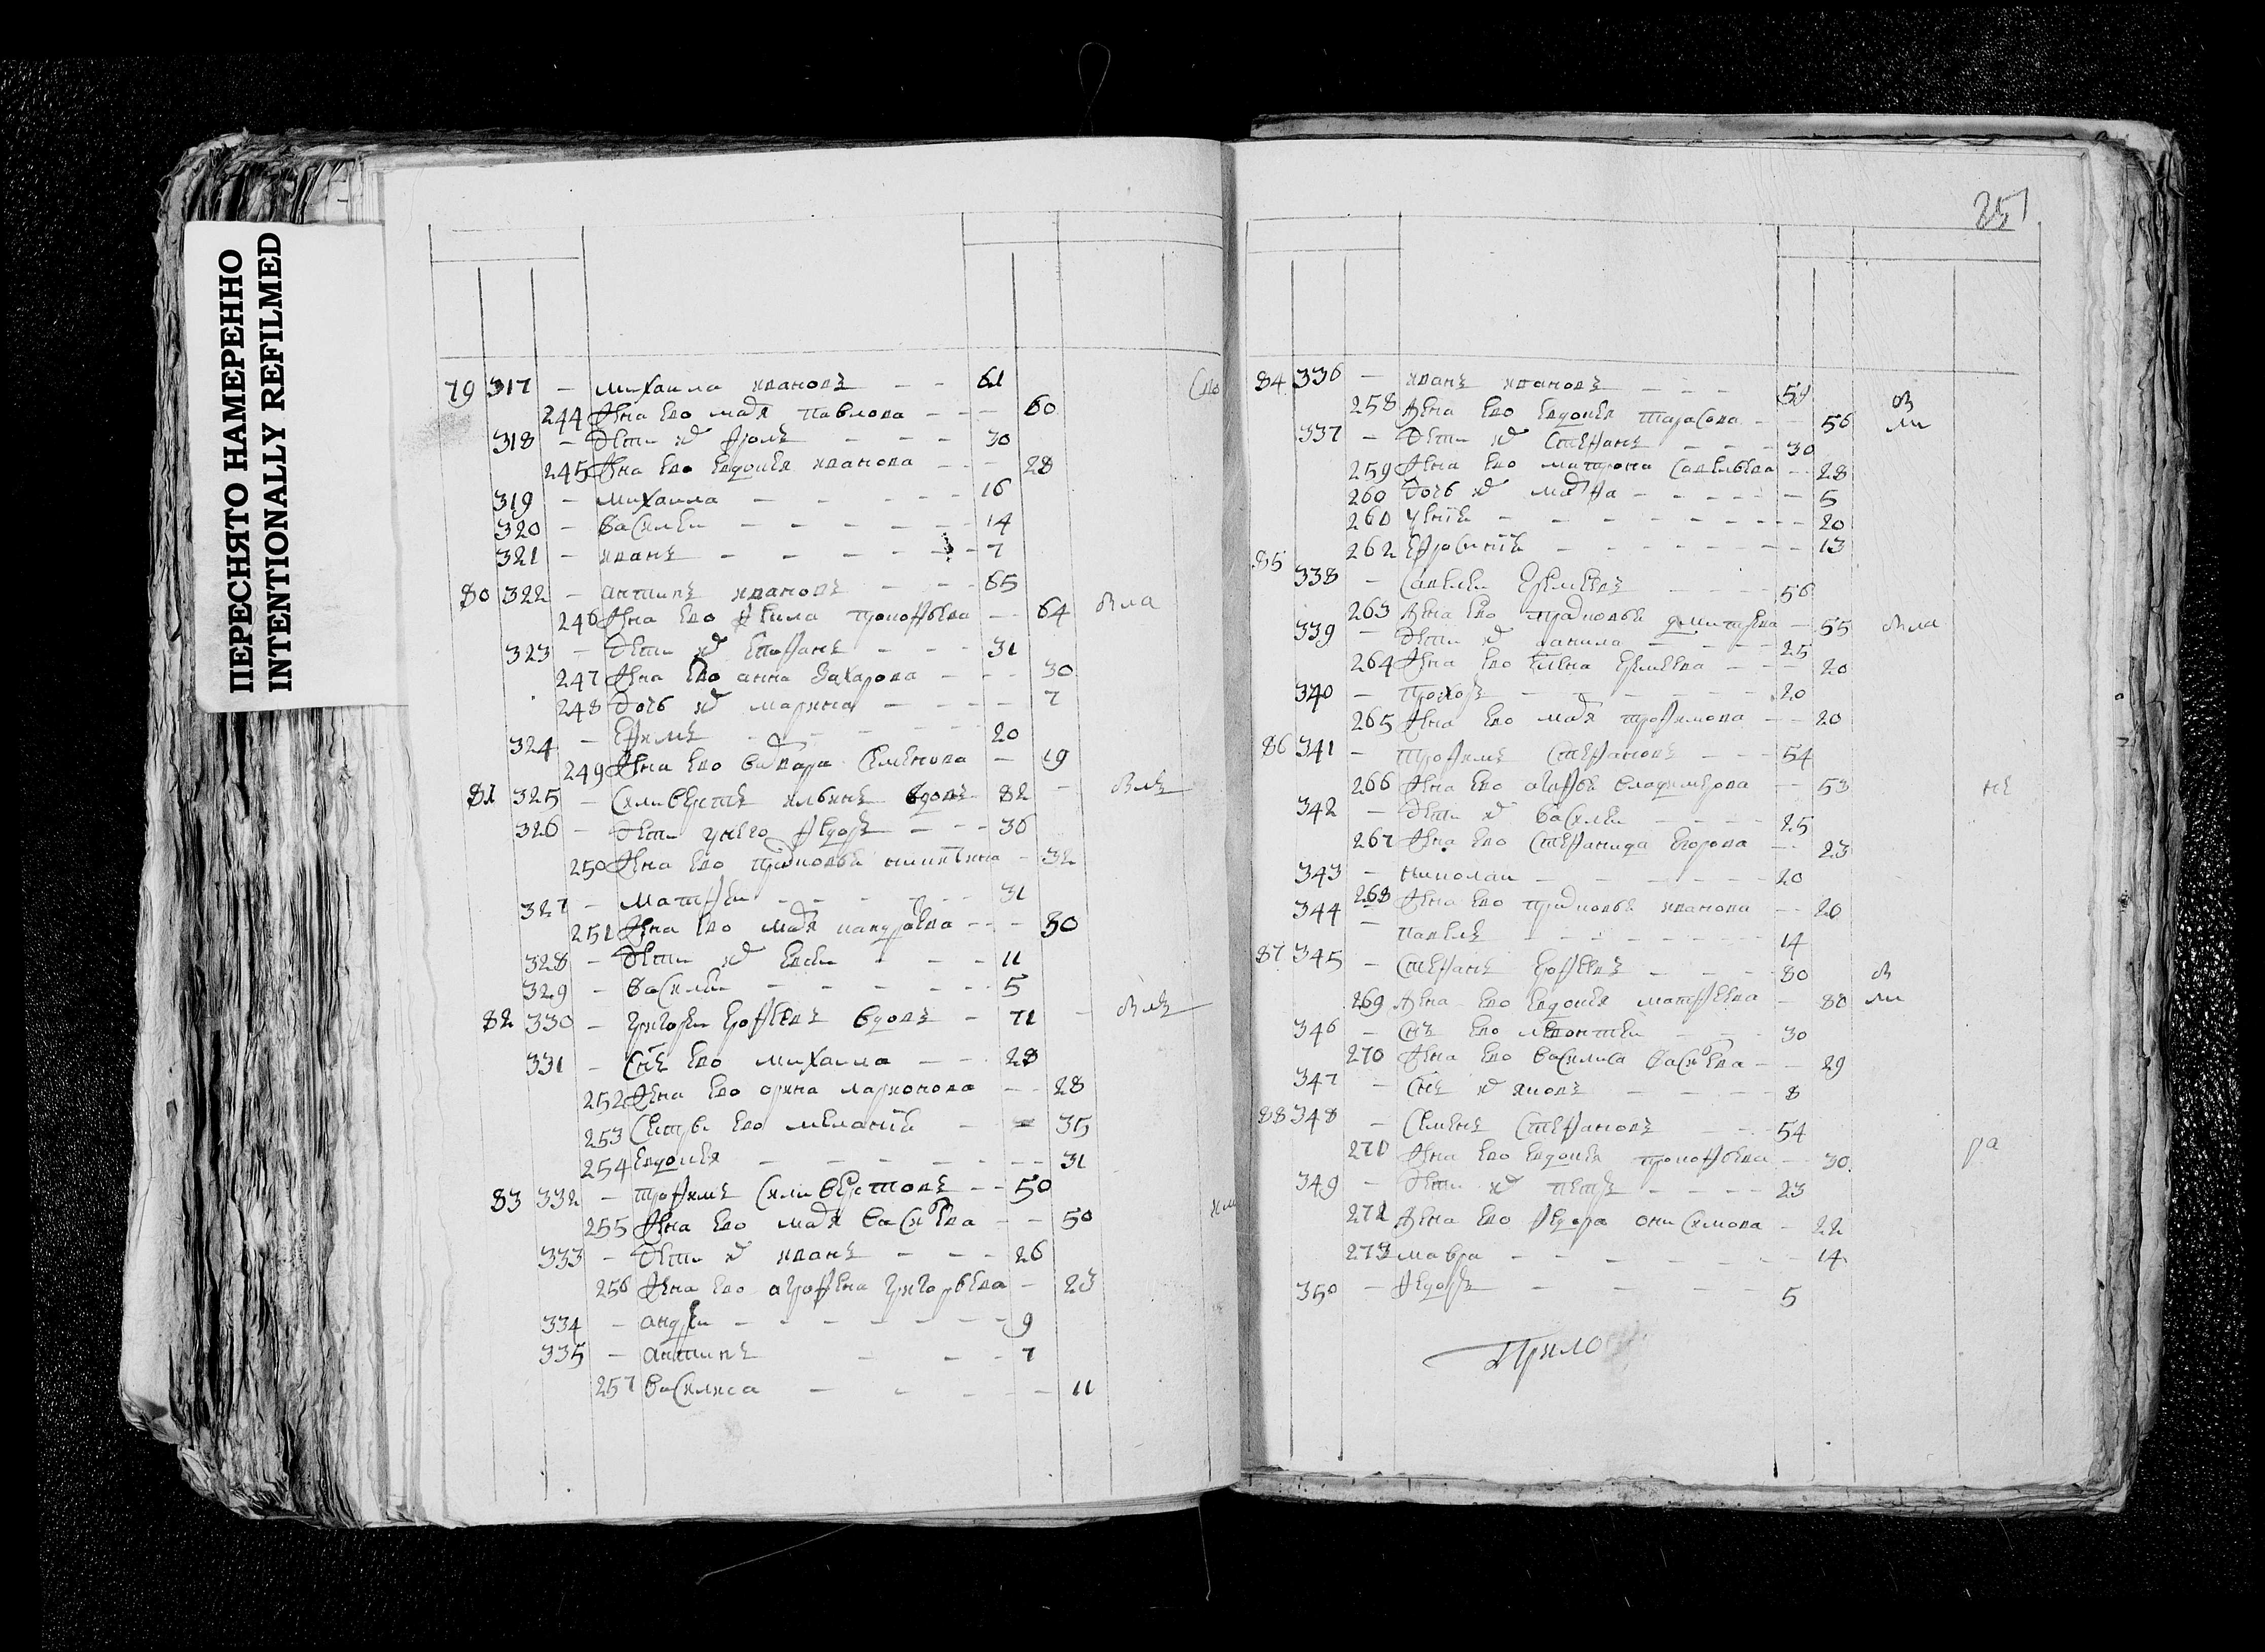 ПЕРЕСНЯТО НАМЕРЕННО
INTENTIONALLY REFILMED
79 317 – михаила ивановъ – – 61
244 жена ево марья павлова – – – 60
318 – дети их фролъ – – – 30
245 жена ево евдокея иванова – – – 28
319 – михаила – – – – – 16
320 – василеи – – – – – 14
321 – иванъ – – – – – 7
80 322 – антипъ ивановъ – – – 65
246 жена ево акилина прокофьева – – 64
323 – дети их епифанъ – – – 31
247 жена ево анна захарова – – – 30
248 дочь их марина – – – – 7
324 – ефимъ – – – – – 20
249 жена ево варвара семенова – 19
81 325 – силиверстъ ильинъ вдовъ 82 –
326 – дети у него федоръ – – – 36
250 жена ево прасковья никитина – 32
327 – матфеи – – – – – – 31
251 жена ево марья кандратева – – – 30
328 – дети их евсеи – – – 11
329 – василеи – – – – – – 5
82 330 – григореи ерофеевъ вдовъ – 71 –
331 – снъ ево михаила – – – 28
252 жена ево орина ларионова – – 28
253 сестры ево меланiя – – 35
254 евдокея – – – – – – – 31
83 332 – трофимъ силиверстовъ – – 50
255 жена ево марья васильева – – 50
333 – дети их иванъ – – – 26
256 жена ево агрофена григорьева – 23
334 – андреи – – – – – – – 9
335 – антипъ – – – 7
257 василиса – – – – – 11
251
84 336 – иванъ ивановъ – – – 58
258 жена ево евдокея тарасова – – 56
337 – дети их стефанъ – – – 30
259 жена ево матрона савельева – – 28
260 дочь их марфа – – – – – – 5
260 – – – – – – – – – 20
262 ефросинiя – – – – – – – 13
85 338 – савелеи еремеевъ – – – – 56
263 жена ево прасковья дмитрева – 55
339 – дети их данила – – – – 25
264 жена ево елена еремеева – – – 20
340 – прохоръ – – – – – 20
265 жена ево марья трофимова – – 20
86 341 – трофимъ стефановъ – – 54
266 жена ево агафья владимерова – – 53 не
342 – дети их василеи – – – – 25
267 жена ево стефанида егорова – – 23
343 – николаи – – – – – – 20
268 жена ево прасковья иванова – – 20
344 – павелъ – – – – – – – 14
87 345 – стефанъ ерофеевъ – – – 80
269 жена ево евдокея матфеева – 80
346 – снъ ево леонтеи – – – 30
270 жена ево василиса васильева – – 29
347 – снъ их яковъ – – – – 8
88 348 – семенъ стефановъ – – – 54
271 жена ево евдокея прокофьева – – 30 ра
349 – дети их петръ – – – – 23
272 жена ево федора онисимова – 22
273 мавра – – – – – – – 14
350 – федоръ – – – – 5